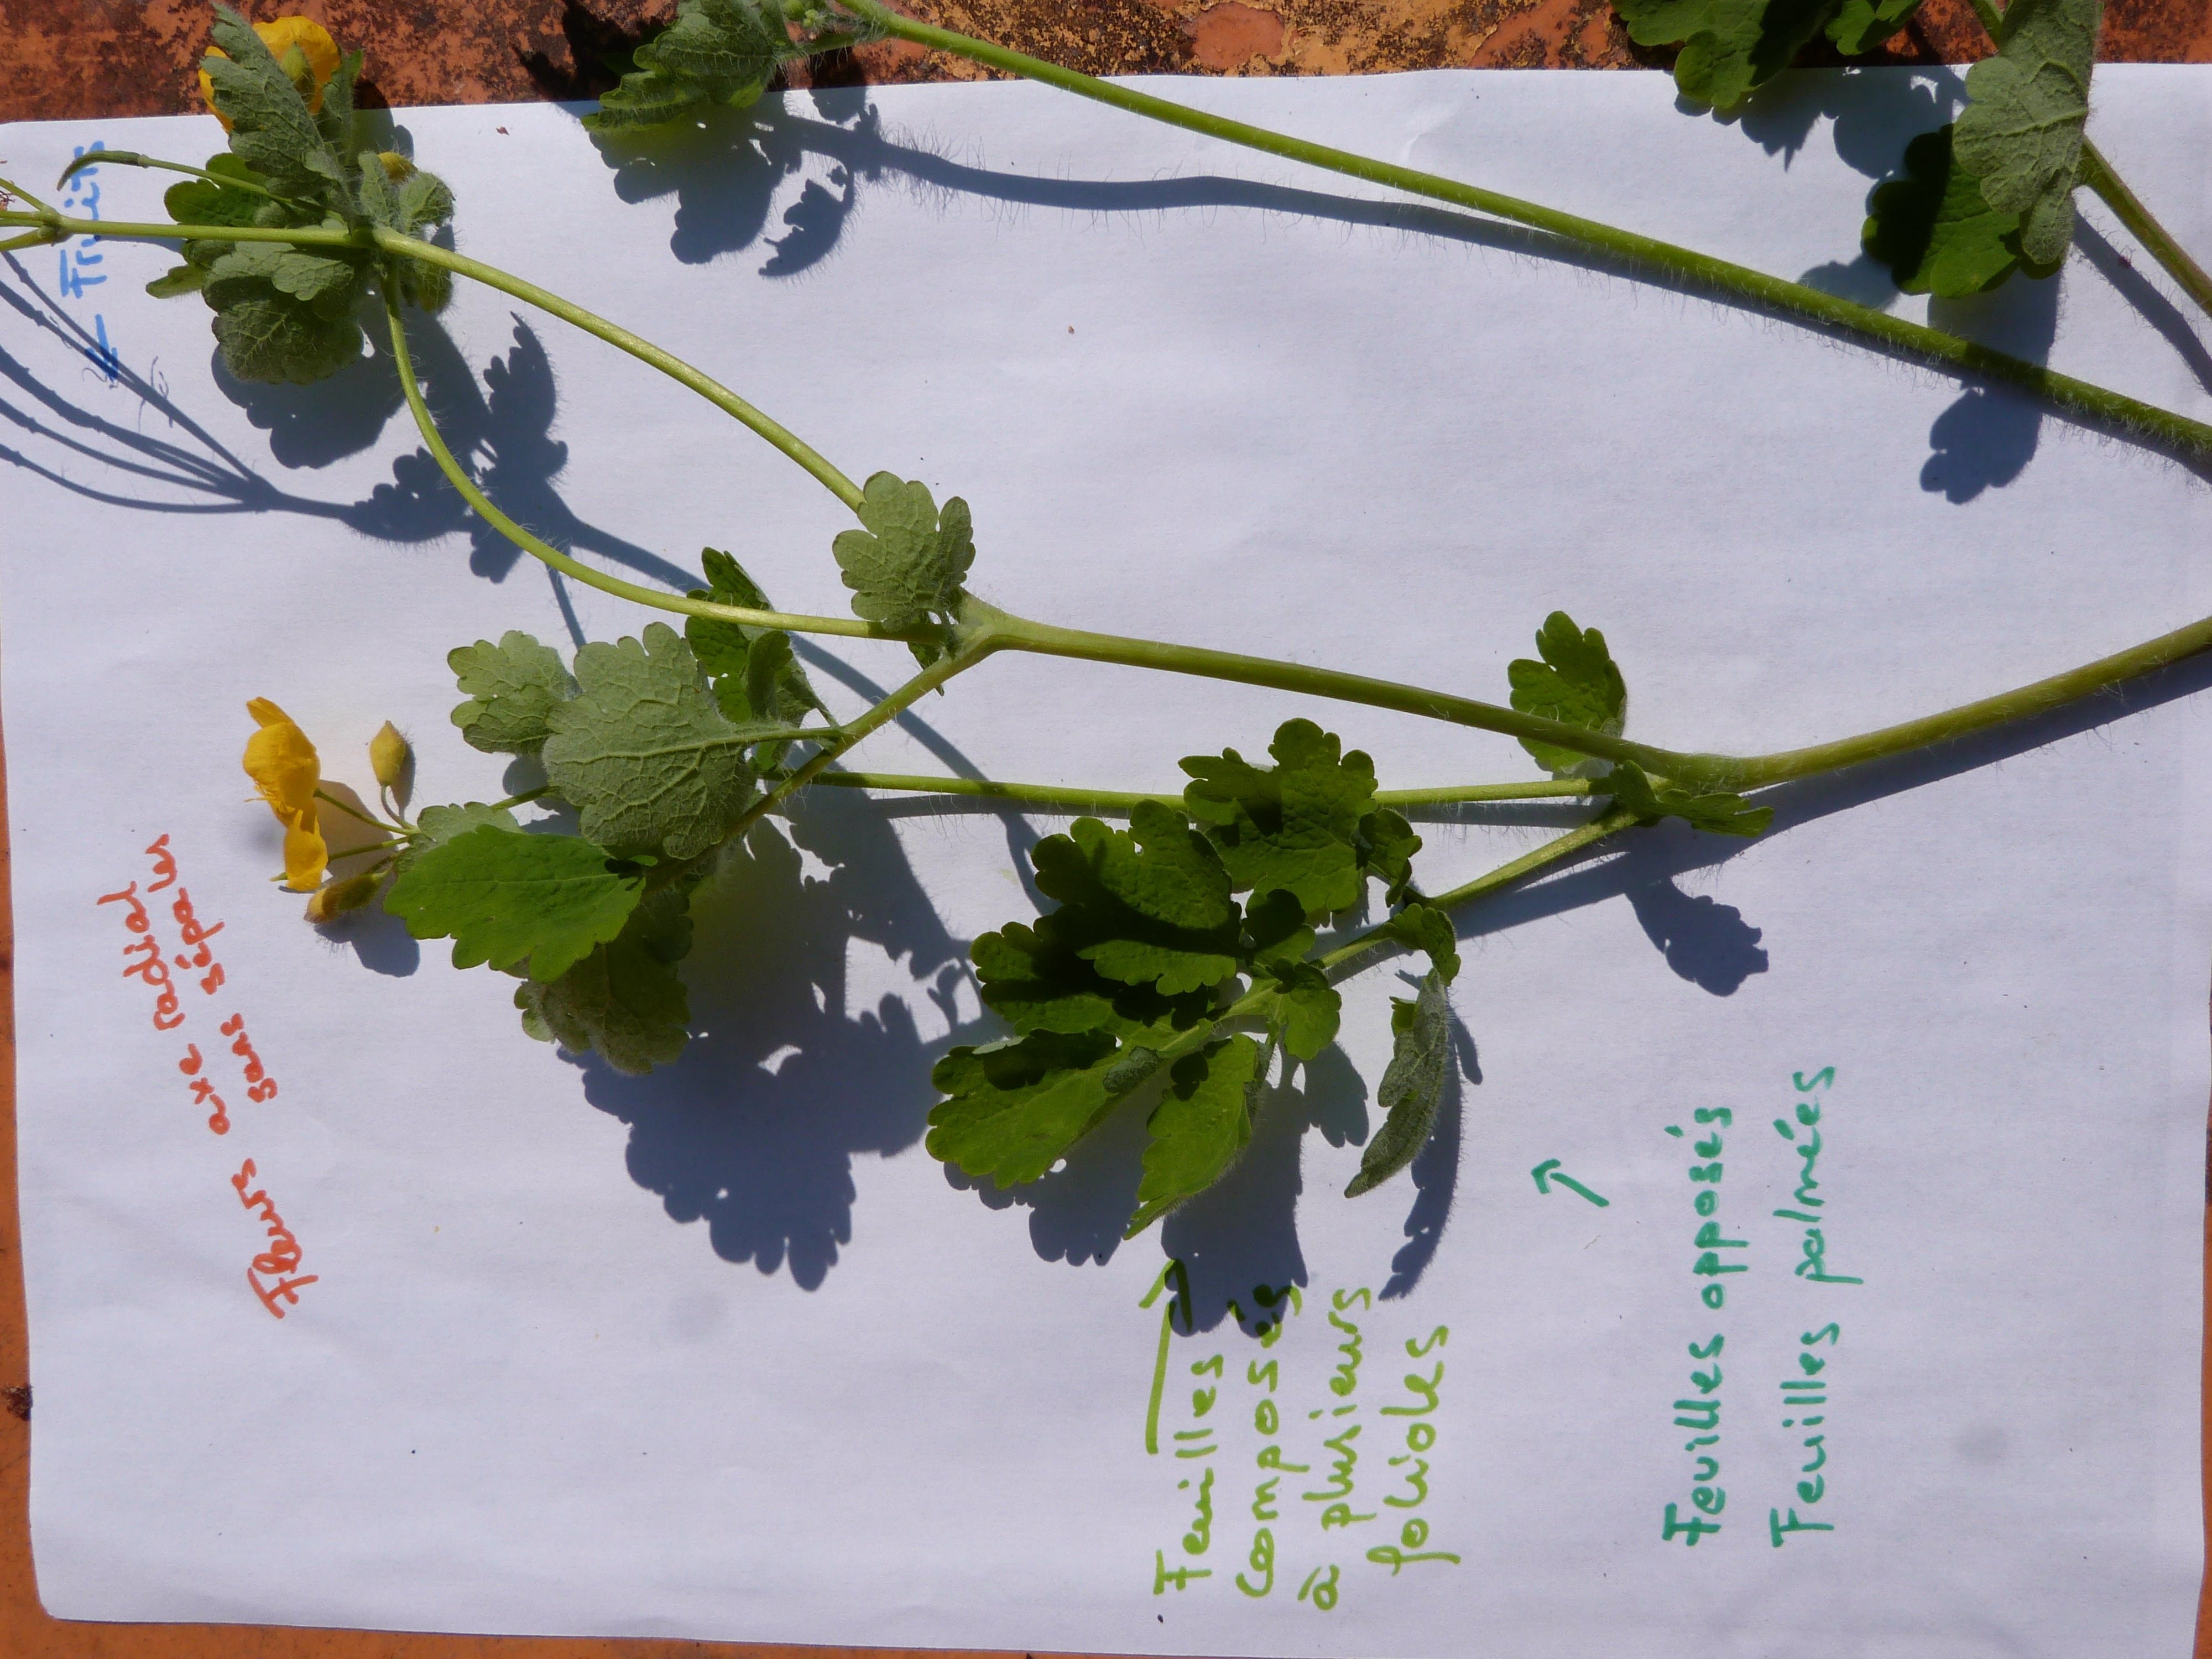 ← Fruits
Fleurs axe radial
sans sépales
Feuilles
composés
à plusieurs
folioles
Feuilles opposés
Feuilles palmées